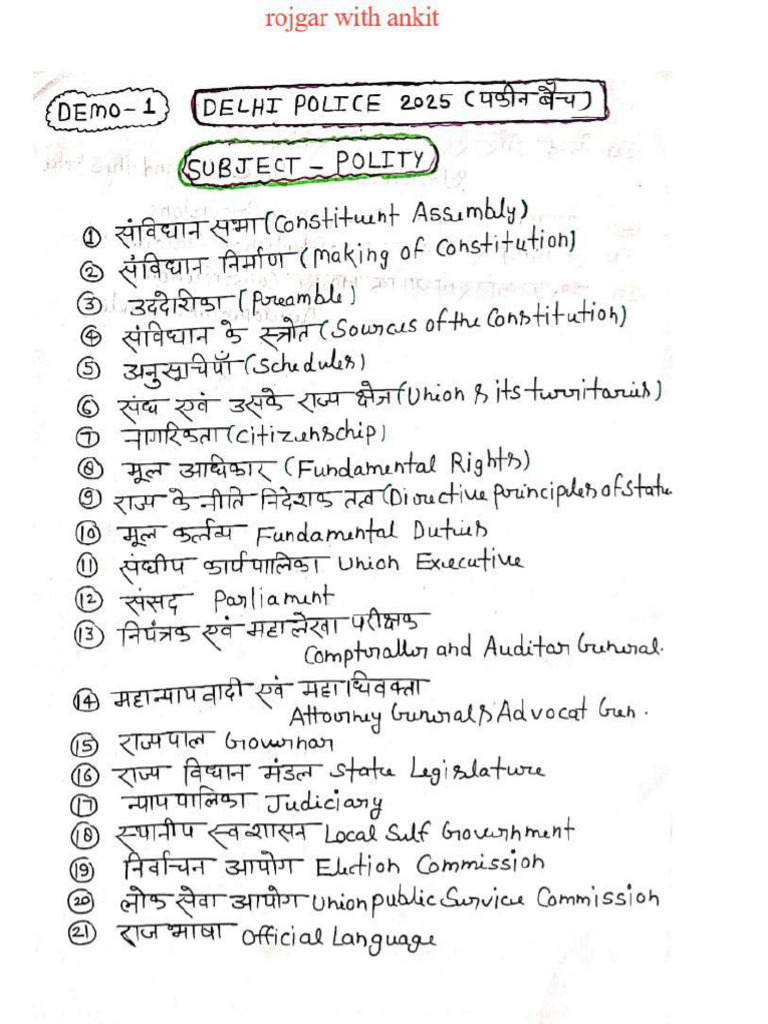 rojgar with ankit
DEMO-1 DELHI POLICE 2025 (यकीन बैच)
SUBJECT - POLITY
① संविधान सभा (Constituent Assembly)
② संविधान निर्माण (Making of Constitution)
③ उददेशिका (Preamble)
④ संविधान के स्त्रोत (Sources of the Constitution)
⑤ अनुसूचियाँ (Schedules)
⑥ संघ एवं उसके राज्य क्षेत्र (Union & its turritaries)
⑦ नागरिकता (Citizenschip)
⑧ मूल अधिकार (Fundamental Rights)
⑨ राज्य के नीति निदेशक तत्व (Directive principles of state
⑩ मूल कर्तव्य Fundamental Duties
⑪ संघीय कार्यपालिका Union Executive
⑫ संसद Parliament
⑬ नियंत्रक एवं महालेखा परीक्षक
Comptroller and Auditor General.
⑭ महान्यायवादी एवं महाधिवक्ता
Attorney General & Advocat Gen.
⑮ राज्यपाल Governor
⑯ राज्य विधान मंडल State Legislature
⑰ न्यायपालिका Judiciary
⑱ स्थानीय स्वशासन Local Self Government
⑲ निर्वाचन आयोग Election Commission
⑳ लोक सेवा आयोग Union public Service Commission
㉑ राजभाषा Official Language